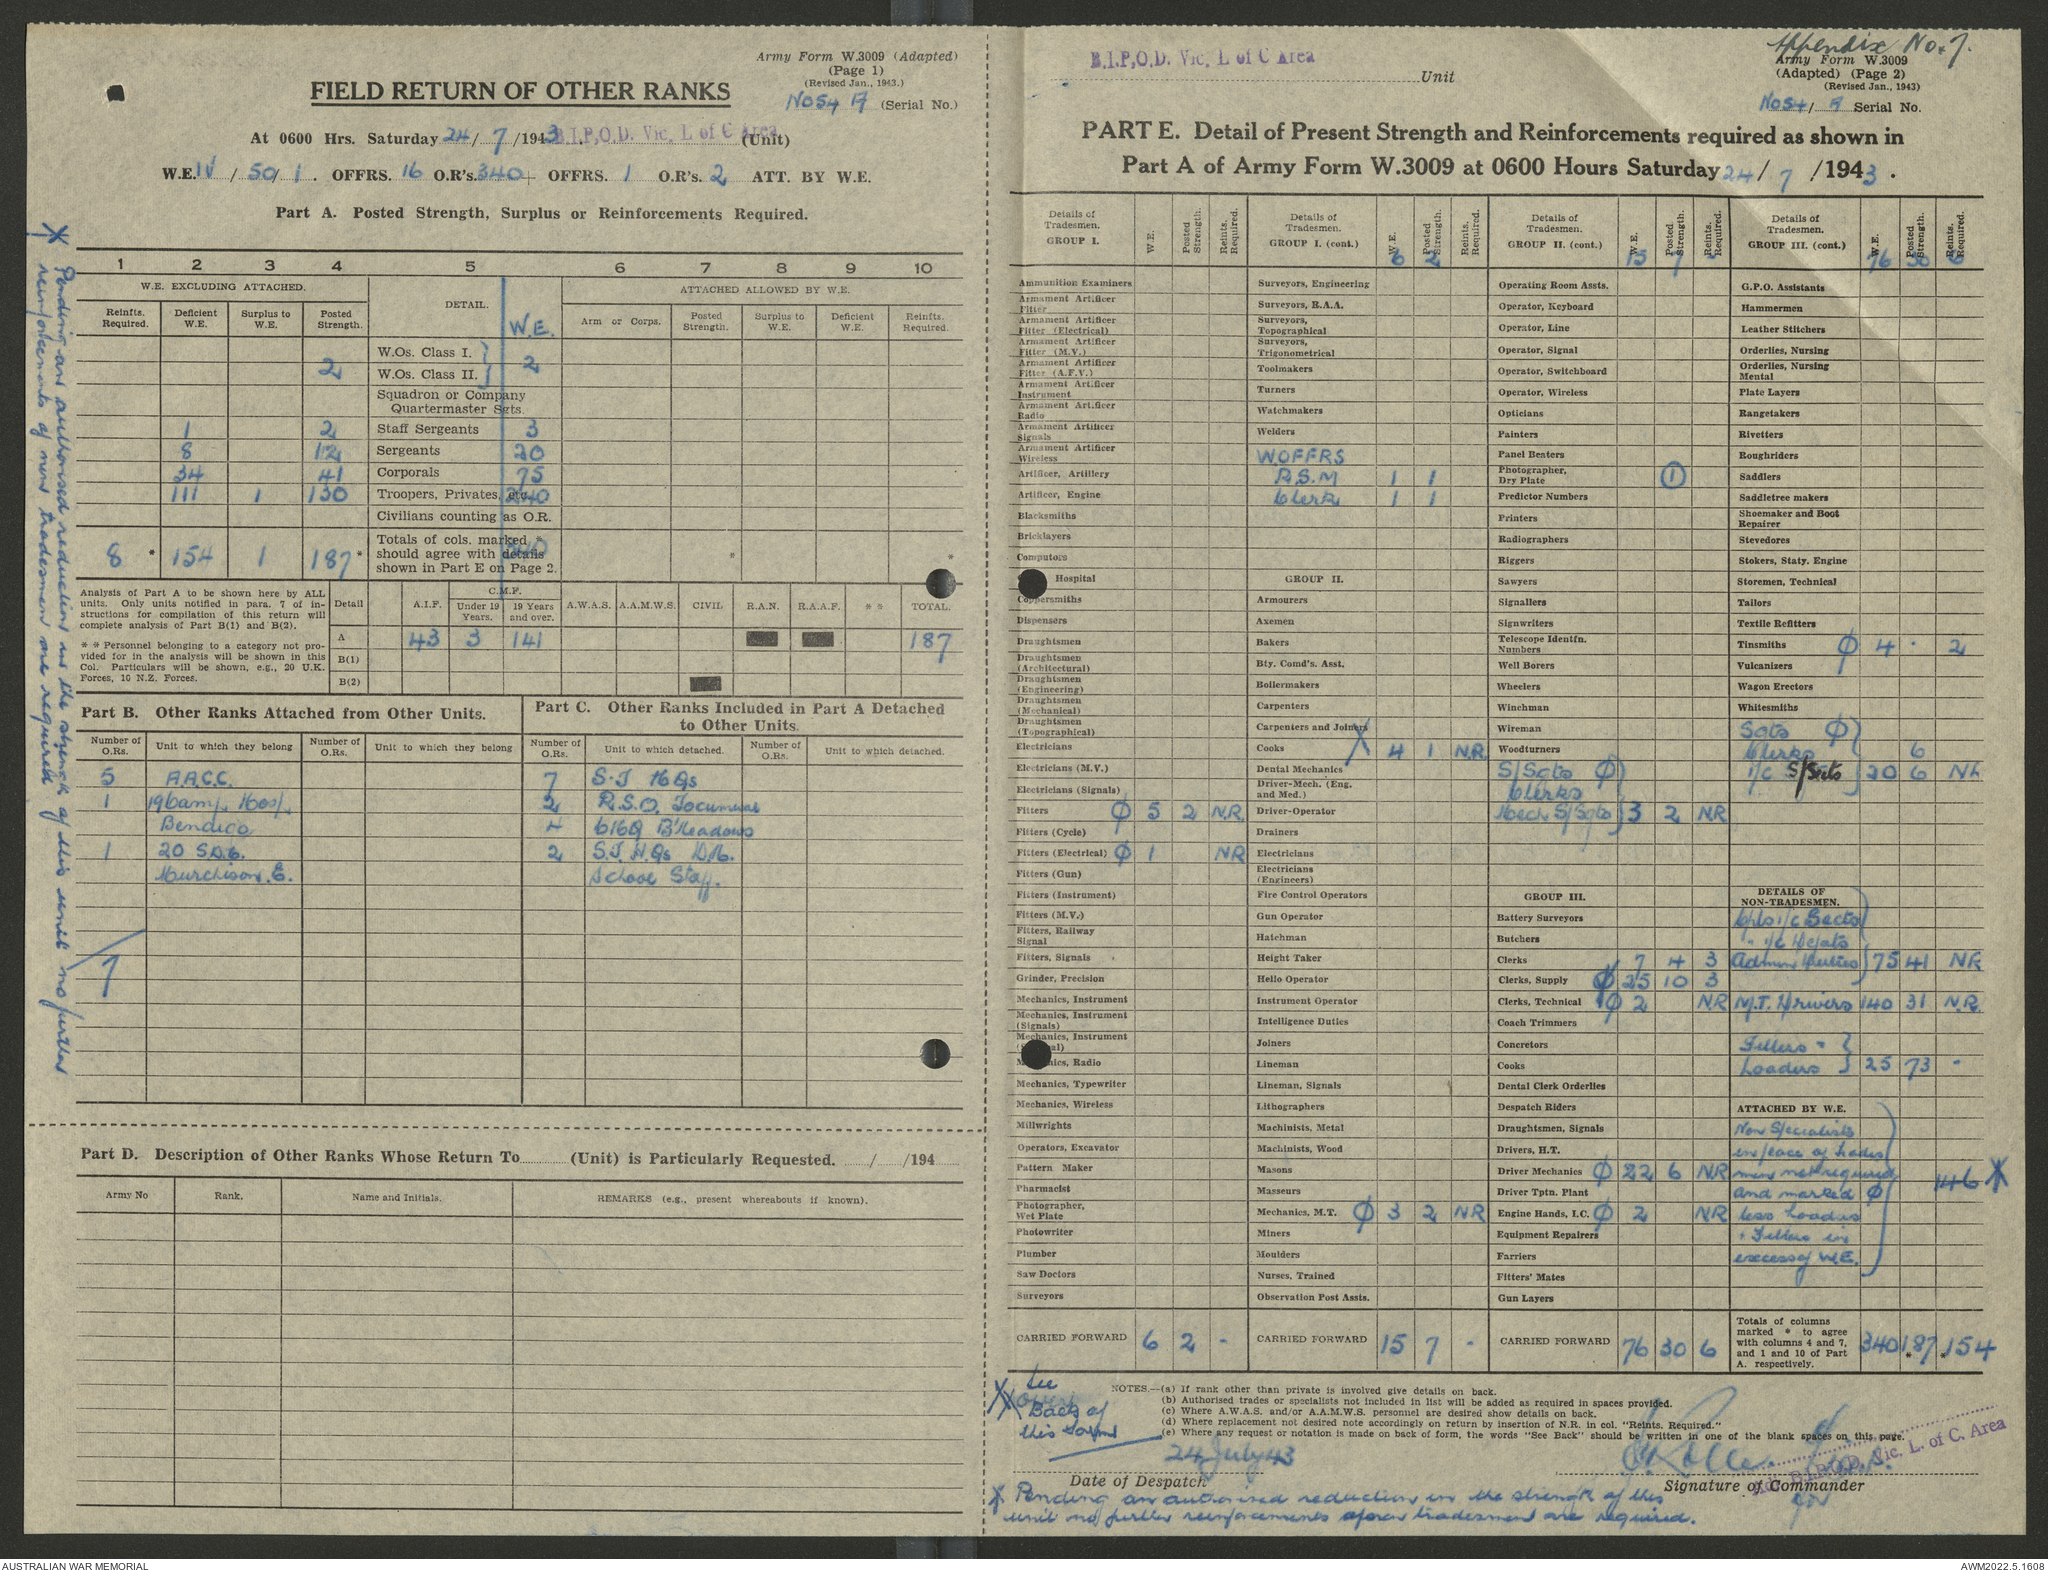 Army Form W.3009 (Adapted)
(Page 1)
(Revised Jan., 1943.)
FIELD RETURN OF OTHER RANKS
No 54 A (Serial No.)
At 0600 Hrs. Saturday 24/ 7 /1943 B.I.P.O.D. Vic. L of C Area (Unit)
W.E. IV / 50/ 1 . OFFRS. 16 O.R's. 340 + OFFRS. 1 O.R's. 2 ATT. BY W.E.
Part A. Posted Strength, Surplus or Reinforcements Required.
1 2 3 4 5 6 7 8 9 10
W.E. EXCLUDING ATTACHED. DETAIL. W.E. ATTACHED ALLOWED BY W.E.
Reinfts. Required. Deficient W.E. Surplus to W.E. Posted Strength. Arm or Corps. Posted Strength. Surplus to W.E. Deficient W.E. Reinfts. Required.
W.Os. Class I.
2 W.Os. Class II. 2
Squadron or Company Quartermaster Sgts.
1 2 Staff Sergeants 3
8 12 Sergeants 20
34 41 Corporals 75
111 1 130 Troopers, Privates, etc. 240
Civilians counting as O.R.
8 * 154 1 187 * Totals of cols. marked * should agree with details shown in Part E on Page 2. 340 * *
Analysis of Part A to be shown here by ALL units. Only units notified in para. 7 of instructions for compilation of this return will complete analysis of Part B(1) and B(2).
* * Personnel belonging to a category not provided for in the analysis will be shown in this Col. Particulars will be shown, e.g., 20 U.K. Forces, 10 N.Z. Forces.
Detail A.I.F. C.M.F. Under 19 Years. 19 Years and over. A.W.A.S. A.A.M.W.S. CIVIL R.A.N. R.A.A.F. * * TOTAL.
A 43 3 141 187
B(1)
B(2)
Part B. Other Ranks Attached from Other Units.
Number of O.Rs. Unit to which they belong Number of O.Rs. Unit to which they belong
5 A.A.C.C.
1 19 Camp Hosp.
Bendigo
1 20 S.D.C.
Murchison. E.
7
Part C. Other Ranks Included in Part A Detached to Other Units.
Number of O.Rs. Unit to which detached. Number of O.Rs. Unit to which detached.
7 S.T HQs
2 R.S.O. Tocumwal
4 B'Meadows
2 S.T. H.Qs
School Staff.
Part D. Description of Other Ranks Whose Return To (Unit) is Particularly Requested. / /194
Army No Rank. Name and Initials. REMARKS (e.g., present whereabouts if known).
* Pending an authorised reduction in the strength of this unit no further
reinforcements of non tradesmen are required
B.I.P.O.D. Vic. L of C Area Unit
Appendix No. 7.
Army Form W.3009
(Adapted) (Page 2)
(Revised Jan., 1943)
No 54/ A Serial No.
PART E. Detail of Present Strength and Reinforcements required as shown in
Part A of Army Form W.3009 at 0600 Hours Saturday 24/ 7 /1943.
Details of Tradesmen. GROUP I. W.E. Posted Strength. Reints. Required.
Ammunition Examiners
Armament Artificer Fitter
Armament Artificer Fitter (Electrical)
Armament Artificer Fitter (M.V.)
Armament Artificer Fitter (A.F.V.)
Armament Artificer Instrument
Armament Artificer Radio
Armament Artificer Signals
Armament Artificer Wireless
Artificer, Artillery
Artificer, Engine
Blacksmiths
Bricklayers
Computors
Hospital
Coppersmiths
Dispensers
Draughtsmen
Draughtsmen (Architectural)
Draughtsmen (Engineering)
Draughtsmen (Mechanical)
Draughtsmen (Topographical)
Electricians
Electricians (M.V.)
Electricians (Signals)
Fitters ϕ 5 2 N.R.
Fitters (Cycle)
Fitters (Electrical) ϕ 1 NR
Fitters (Gun)
Fitters (Instrument)
Fitters (M.V.)
Fitters, Railway Signal
Fitters, Signals
Grinder, Precision
Mechanics, Instrument
Mechanics, Instrument (Signals)
Mechanics, Instrument
Mechanics, Radio
Mechanics, Typewriter
Mechanics, Wireless
Millwrights
Operators, Excavator
Pattern Maker
Pharmacist
Photographer, Wet Plate
Photowriter
Plumber
Saw Doctors
Surveyors
CARRIED FORWARD 6 2 -
Details of Tradesmen. GROUP I. (cont.) W.E. Posted Strength. Reints. Required.
6 2
Surveyors, Engineering
Surveyors, R.A.A.
Surveyors, Topographical
Surveyors, Trigonometrical
Toolmakers
Turners
Watchmakers
Welders
W.OFFRS
R.S.M 1 1
Clerk 1 1
GROUP II.
Armourers
Axemen
Bakers
Bty. Comd's. Asst.
Boilermakers
Carpenters
Carpenters and Joiners
Cooks 4 1 N.R.
Dental Mechanics
Driver-Mech. (Eng. and Med.)
Driver-Operator
Drainers
Electricians
Electricians (Engineers)
Fire Control Operators
Gun Operator
Hatchman
Height Taker
Hello Operator
Instrument Operator
Intelligence Duties
Joiners
Lineman
Lineman, Signals
Lithographers
Machinists, Metal
Machinists, Wood
Masons
Masseurs
Mechanics, M.T. ϕ 3 2 NR
Miners
Moulders
Nurses, Trained
Observation Post Assts.
CARRIED FORWARD 15 7 -
Details of Tradesmen. GROUP II. (cont.) W.E. Posted Strength. Reints. Required.
15 7 -
Operating Room Assts.
Operator, Keyboard
Operator, Line
Operator, Signal
Operator, Switchboard
Operator, Wireless
Opticians
Painters
Panel Beaters
Photographer, Dry Plate 1
Predictor Numbers
Printers
Radiographers
Riggers
Sawyers
Signallers
Signwriters
Telescope Identfn. Numbers
Well Borers
Wheelers
Winchman
Wireman
Woodturners
S/Sgts ϕ
Clerks
Mech S/Sgts 3 2 NR
GROUP III.
Battery Surveyors
Butchers
Clerks 7 4 3
Clerks, Supply ϕ 25 10 3
Clerks, Technical ϕ 2 NR
Coach Trimmers
Concretors
Cooks
Dental Clerk Orderlies
Despatch Riders
Draughtsmen, Signals
Drivers, H.T.
Driver Mechanics ϕ 22 6 NR
Driver Tptn. Plant
Engine Hands, I.C. ϕ 2 NR
Equipment Repairers
Farriers
Fitters' Mates
Gun Layers
CARRIED FORWARD 76 30 6
Details of Tradesmen. GROUP III. (cont.) W.E. Posted Strength. Reints. Required.
76 30 6
G.P.O. Assistants
Hammermen
Leather Stitchers
Orderlies, Nursing
Orderlies, Nursing Mental
Plate Layers
Rangetakers
Rivetters
Roughriders
Saddlers
Saddletree makers
Shoemaker and Boot Repairer
Stevedores
Stokers, Staty. Engine
Storemen, Technical
Tailors
Textile Refitters
Tinsmiths ϕ 4 · 2
Vulcanizers
Wagon Erectors
Whitesmiths
Sgts ϕ
Clerks 6
i/c S/Sects 20 6 NR
DETAILS OF NON-TRADESMEN.
Cpls i/c Sects
" i/c Depots
Admin Duties 75 41 NR
M.T. Drivers 140 31 N.R.
Fillers "
Loaders 25 73 -
ATTACHED BY W.E.
Non Specialists
in place of trades
men not required
and marked ϕ 146 *
less Loaders
+ Fillers in
excess of W.E.
Totals of columns marked * to agree with columns 4 and 7, and 1 and 10 of Part A. respectively. 340 187 * * 154
See
over
Back of
this form
NOTES.—(a) If rank other than private is involved give details on back.
(b) Authorised trades or specialists not included in list will be added as required in spaces provided.
(c) Where A.W.A.S. and/or A.A.M.W.S. personnel are desired show details on back.
(d) Where replacement not desired note accordingly on return by insertion of N.R. in col. "Reints. Required."
(e) Where any request or notation is made on back of form, the words "See Back" should be written in one of the blank spaces on this page.
24 July 43
Date of Despatch
B.I.P.O.D. Vic. L. of C. Area
Signature of Commander
* Pending an authorised reduction in the strength of this
unit no further reinforcements of non tradesmen are required.
AUSTRALIAN WAR MEMORIAL
AWM2022.5.1608